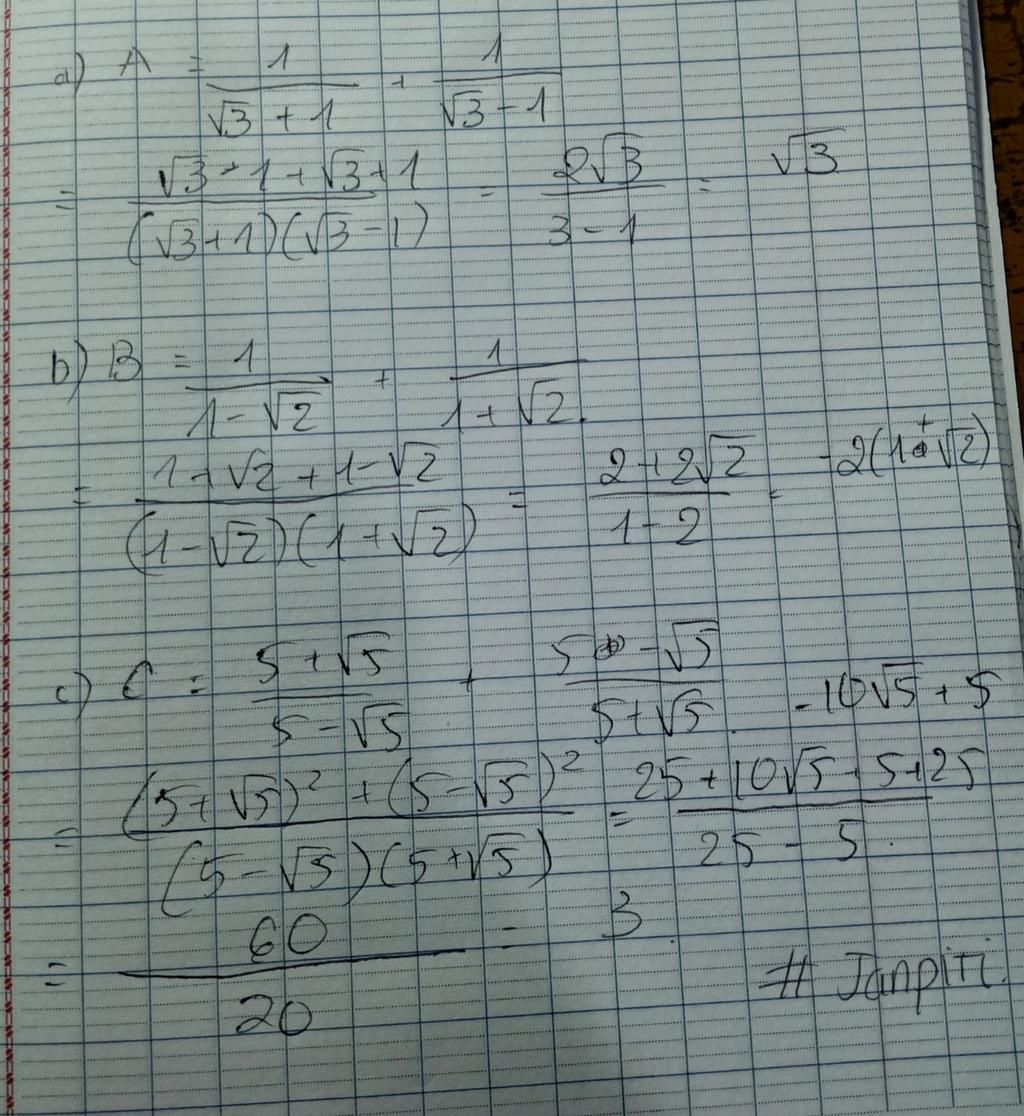 a) A = 1/(√3 + 1) + 1/(√3 - 1)
= (√3 - 1 + √3 + 1)/((√3 + 1)(√3 - 1)) = 2√3/(3 - 1) = √3
b) B = 1/(1 - √2) + 1/(1 + √2).
= (1 + √2 + 1 - √2)/((1 - √2)(1 + √2)) = (2 + 2√2)/(1 - 2) = -2(1 + √2)
c) C = (5 + √5)/(5 - √5) + (5 - √5)/(5 + √5).
= ((5 + √5)² + (5 - √5)²)/((5 - √5)(5 + √5)) = (25 + 10√5 + 5 + 25 - 10√5 + 5)/(25 - 5).
= 60/20 = 3.
# Janpiti.